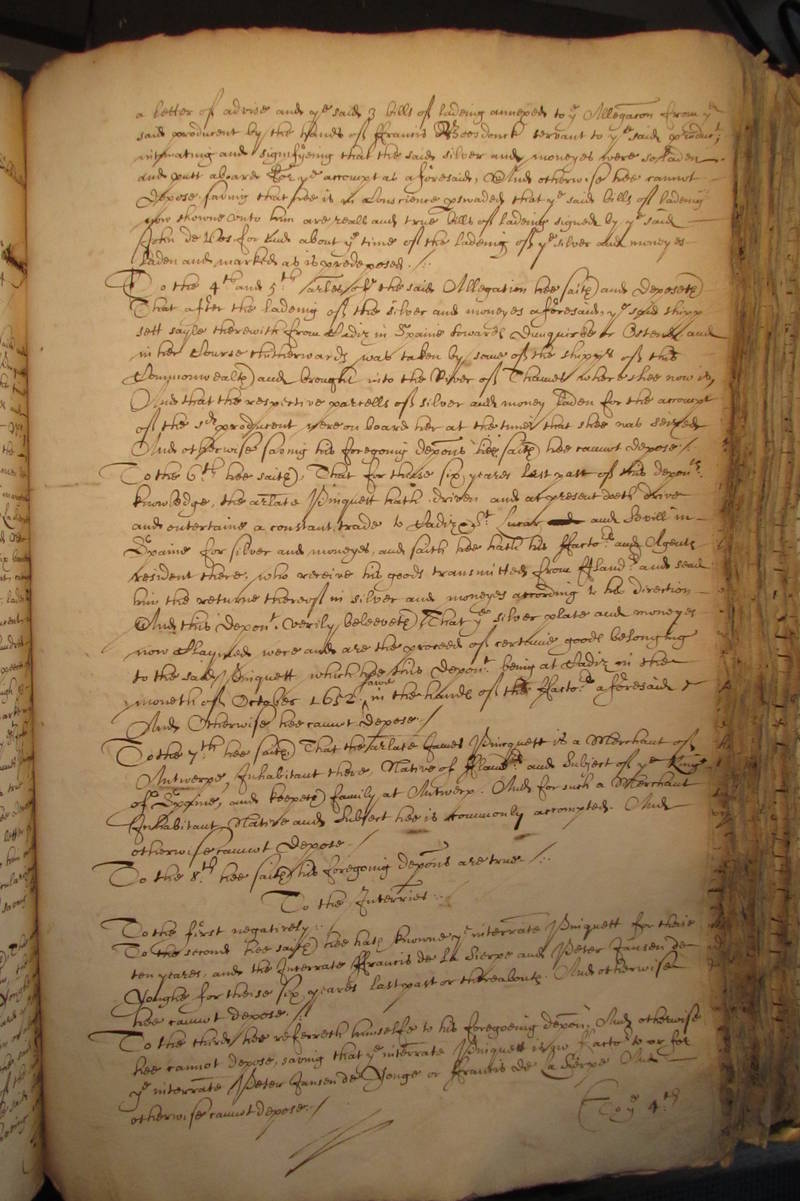 a letter of advise and ye said 3 bills of ladeing annexed to ye Allegaton from ye
said producent by the hands of ffrancis servant to ye said producent
intimating and signifyeing that the said silver and moneyes were soe laden
and putt aboard for ye accompt as aforesaid, And otherwise hee cannot
depose saving that hee is in Conscience perswaded that ye said bills of ladeing
now showne unto him are reall and true bills of ladeing signed by ye said
John de Vos for and about ye time of the ladeing of ye silver and moneyes
laden and marked as is predeposed ./:
To the 4th and 5th arles of the said Allegation hee saith and deposeth
That after the ladeing of the silver and moneyes aforesaid, ye said shipp
sett sayle therewith from Cadiz in Spaine towards Dunquirke or Ostend, and
in her Course thitherwards was taken by some of the shipps of this
Commonwealth and brought into the River of Thames where shee now is,
And that the respective parcells of silver and money laden for the accompt
of the sd producent were on board her at the time that shee was seized
And otherwise saving his foregoing depons hee saith hee cannot depose /.
To the 6th hee saith, That for theise six yeares last past of this deponts
knowledge, the arlate Pinquett hath driven and at present doth drive
and entertaine a constant trade to Cadiz St Lucar and Sevill in
Spaine for silver and moneyes, and saith hee hath his ffactors and Agents
resident there, who receive his goods transmitted from ffland.rs and send
him the returne thereof in silver and moneyes according to his direction
And this depont verily beleeveth That ye silver plate and moneyes
now claymed were and are the proceed of certaine goods belonging
to the said Pinquett which hee this depont being at Cadiz in the
moneth of October 1652 sawe in the hands of the ffactors aforesaid
And Otherwise hee cannot depose ./
To the 7th hee saith That the arlate James Pincquett is a Merchant of
Antwerpe, Inhabitant there, Native of fflandrs and Subject of ye King
of Spaine, and keepeth family at Antwerp. And for such a Merchant
Inhabitant Native and Subject hee is commonly accompted. And
otherwise cannot depose ./
To the 8th hee saith his foregoing depons are true /:.
To the Interries ./.
To the first negatively ./.
To the second hee sayth hee hath knowne ye interrate Pinquett for theis
ten yeares, and the Interrate ffrancis de la Sierpe and Peter Jansen de
Yonghe for theise six yeares last past or thereabouts. And otherwise
hee cannot depose ./:
To the third hee referreth himselfe to his foregoeing depons, And otherwise
hee cannot depose, saving that ye interrate Pinquett is no factor to or for
ye interrate Peter Jansen de Yonge or ffrancis de la Sierpe And
otherwise cannot depose ./
To ye 4th